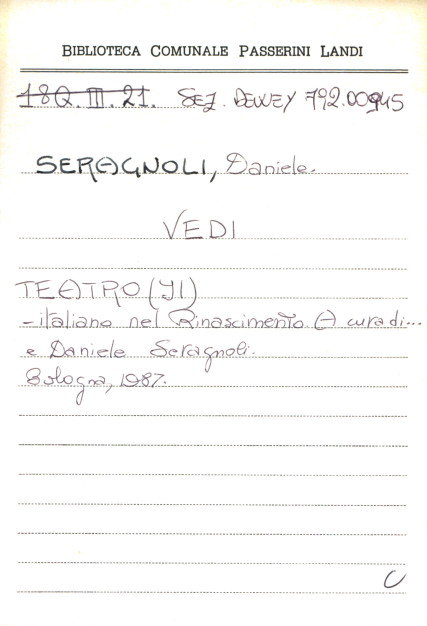 BIBLIOTECA COMUNALE PASSERINI LANDI
18Q.III.21. SEZ. DEWEY 792.00945
SERAGNOLI, Daniele.
VEDI
TEATRO (Il)
- italiano nel Rinascimento. A cura di...
e Daniele Seragnoli.
Bologna, 1987.
C